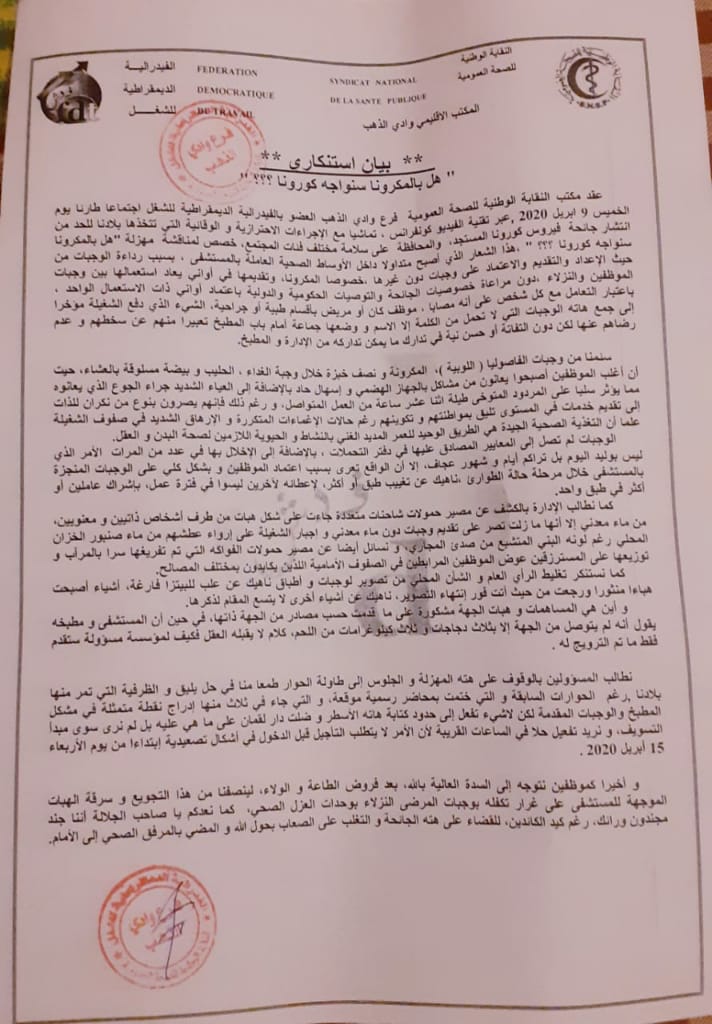 الفيدرالية
الديمقراطية
للشغل
FEDERATION
DEMOCRATIQUE
DU TRAVAIL
SYNDICAT NATIONAL
DE LA SANTE PUBLIQUE
النقابة الوطنية
للصحة العمومية
المكتب الاقليمي وادي الذهب
** بيان استنكاري **
" هل بالمكرونا سنواجه كورونا ؟؟؟ "
عقد مكتب النقابة الوطنية للصحة العمومية فرع وادي الذهب العضو بالفيدرالية الديمقراطية للشغل اجتماعا طارئا يوم
الخميس 9 ابريل 2020 ,عبر تقنية الفيديو كونفرانس , تماشيا مع الإجراءات الاحترازية و الوقائية التي تتخذها بلادنا للحد من
انتشار جائحة فيروس كورونا المستجد، والمحافظة على سلامة مختلف فئات المجتمع، خصص لمناقشة مهزلة "هل بالمكرونا
سنواجه كورونا ؟؟؟ " ,هذا الشعار الذي أصبح متداولا داخل الأوساط الصحية العاملة بالمستشفى , بسبب رداءة الوجبات من
حيث الإعداد والتقديم والاعتماد على وجبات دون غيرها ,خصوصا المكرونا، وتقديمها في أواني يعاد استعمالها بين وجبات
الموظفين والنزلاء ,دون مراعاة خصوصيات الجائحة والتوصيات الحكومية والدولية باعتماد أواني ذات الاستعمال الواحد ،
باعتبار التعامل مع كل شخص على أنه مصابا ، موظف كان أو مريض بأقسام طبية أو جراحية، الشيء الذي دفع الشغيلة مؤخرا
إلى جمع هاته الوجبات التي لا تحمل من الكلمة إلا الاسم و وضعها جماعة أمام باب المطبخ تعبيرا منهم عن سخطهم و عدم
رضاهم عنها لكن دون التفاتة أو حسن نية في تدارك ما يمكن تداركه من الإدارة و المطبخ.
سئمنا من وجبات الفاصوليا ( اللوبية )، المكرونة و نصف خبزة خلال وجبة الغداء ، الحليب و بيضة مسلوقة بالعشاء، حيث
أن أغلب الموظفين أصبحوا يعانون من مشاكل بالجهاز الهضمي و إسهال حاد بالإضافة إلى العياء الشديد جراء الجوع الذي يعانوه
مما يؤثر سلبا على المردود المتوخى طيلة اثنا عشر ساعة من العمل المتواصل، و رغم ذلك فإنهم يصرون بنوع من نكران للذات
إلى تقديم خدمات في المستوى تليق بمواطنتهم و تكوينهم رغم حالات الإغماءات المتكررة و الإرهاق الشديد في صفوف الشغيلة
علما أن التغذية الصحية الجيدة هي الطريق الوحيد للعمر المديد الغني بالنشاط و الحيوية اللازمين لصحة البدن و العقل.
الوجبات لم تصل إلى المعايير المصادق عليها في دفتر التحملات ، بالإضافة إلى الإخلال بها في عدد من المرات الأمر الذي
ليس بوليد اليوم بل تراكم أيام و شهور عجاف، إلا أن الواقع تعرى بسبب اعتماد الموظفين و بشكل كلي على الوجبات المنجزة
بالمستشفى خلال مرحلة حالة الطوارئ ،ناهيك عن تغييب طبق أو أكثر، لإعطائه لآخرين ليسوا في فترة عمل، بإشراك عاملين أو
أكثر في طبق واحد.
كما نطالب الإدارة بالكشف عن مصير حمولات شاحنات متعددة جاءت على شكل هبات من طرف أشخاص ذاتيين و معنويين،
من ماء معدني إلا أنها ما زلت تصر على تقديم وجبات دون ماء معدني و اجبار الشغيلة على إرواء عطشهم من ماء صنبور الخزان
المحلي رغم لونه البني المتشبع من صدئ المجاري، و نسائل أيضا عن مصير حمولات الفواكه التي تم تفريغها سرا بالمرآب و
توزيعها على المسترزقين عوض الموظفين المرابطين في الصفوف الأمامية اللذين يكابدون بمختلف المصالح.
كما نستنكر تغليط الرأي العام و الشأن المحلي من تصوير لوجبات و أطباق ناهيك عن علب للبيتزا فارغة، أشياء أصبحت
هباءا منثورا ورجعت من حيث أتت فور إنتهاء التصوير، ناهيك عن أشياء أخرى لا يتسع المقام لذكرها.
و أين هي المساهمات و هبات الجهة مشكورة على ما قدمت حسب مصادر من الجهة ذاتها، في حين أن المستشفى و مطبخه
يقول أنه لم يتوصل من الجهة إلا بثلاث دجاجات و ثلاث كيلوغرامات من اللحم، كلام لا يقبله العقل فكيف لمؤسسة مسؤولة ستقدم
فقط ما تم الترويج له .
نطالب المسؤولين بالوقوف على هته المهزلة و الجلوس إلى طاولة الحوار طمعا منا في حل يليق و الظرفية التي تمر منها
بلادنا ,رغم الحوارات السابقة و التي ختمت بمحاضر رسمية موقعة، و التي جاء في ثلاث منها إدراج نقطة متمثلة في مشكل
المطبخ والوجبات المقدمة لكن لاشيء تفعل إلى حدود كتابة هاته الأسطر و ضلت دار لقمان على ما هي عليه بل لم نرى سوى مبدأ
التسويف، و نريد تفعيل حلا في الساعات القريبة لأن الأمر لا يتطلب التأجيل قبل الدخول في أشكال تصعيدية إبتداءا من يوم الأربعاء
15 أبريل 2020 .
و أخيرا كموظفين نتوجه إلى السدة العالية بالله، بعد فروض الطاعة و الولاء، لينصفنا من هذا التجويع و سرقة الهبات
الموجهة للمستشفى على غرار تكفله بوجبات المرضى النزلاء بوحدات العزل الصحي، كما نعدكم يا صاحب الجلالة أننا جند
مجندون ورائك، رغم كيد الكائدين، للقضاء على هته الجائحة و التغلب على الصعاب بحول الله و المضي بالمرفق الصحي إلى الأمام.